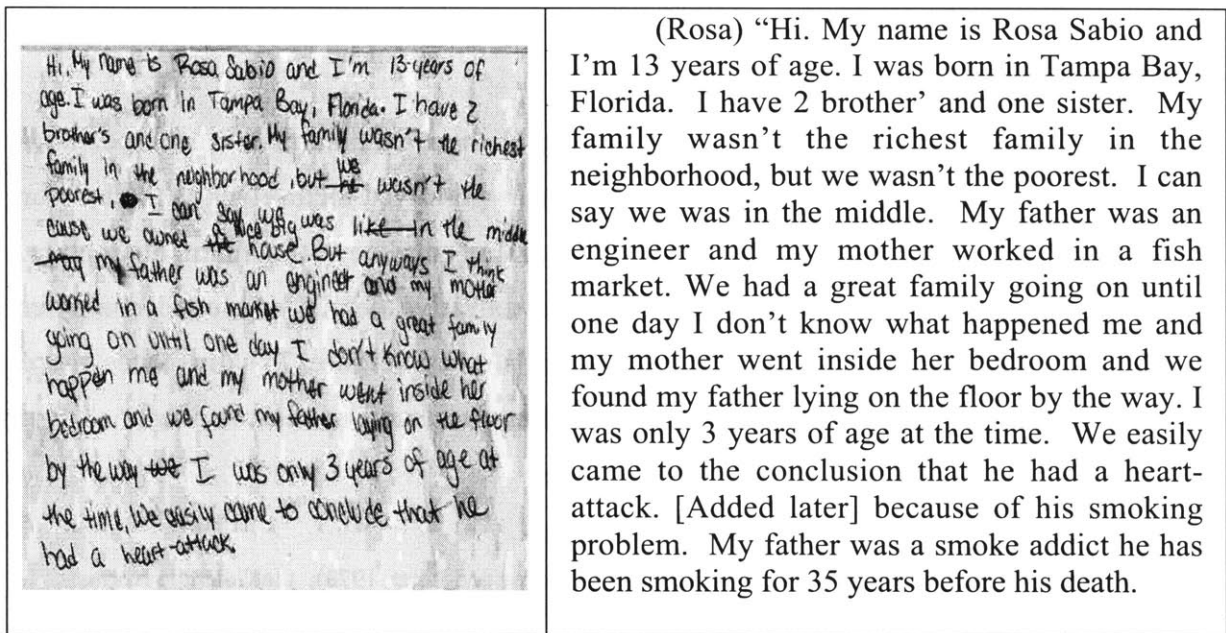 Hi. My name is Rosa Sabio and I'm 13 years of
age. I was born in Tampa Bay, Florida. I have 2
brother's and one sister. My family wasn't the richest
family in the neighborhood, but we wasn't the
poorest. I can say we was like in the middle
cause we owned a nice big house. But anyways I think
my father was an engineer and my mother
worked in a fish market we had a great family
going on until one day I don't know what
happen me and my mother went inside her
bedroom and we found my father laying on the floor
by the way we I was only 3 years of age at
the time, We easily come to conclude that he
had a heart-attack.
(Rosa) “Hi. My name is Rosa Sabio and
I’m 13 years of age. I was born in Tampa Bay,
Florida. I have 2 brother’ and one sister. My
family wasn’t the richest family in the
neighborhood, but we wasn’t the poorest. I can
say we was in the middle. My father was an
engineer and my mother worked in a fish
market. We had a great family going on until
one day I don’t know what happened me and
my mother went inside her bedroom and we
found my father lying on the floor by the way. I
was only 3 years of age at the time. We easily
came to the conclusion that he had a heart-
attack. [Added later] because of his smoking
problem. My father was a smoke addict he has
been smoking for 35 years before his death.